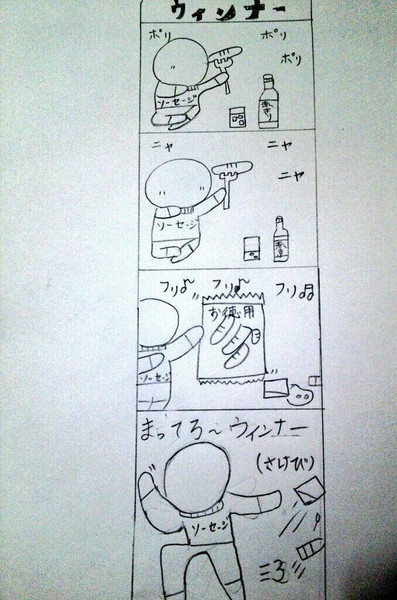 ウィンナー
ポリ
ポリ
ポリ
ソーセージ
ニヤ
ニヤ
ニヤ
ソーセージ
フリ♪
フリ♪
フリ♫
お徳用
ソーセージ
まってろ〜ウィンナー
(さけび)
ソーセージ